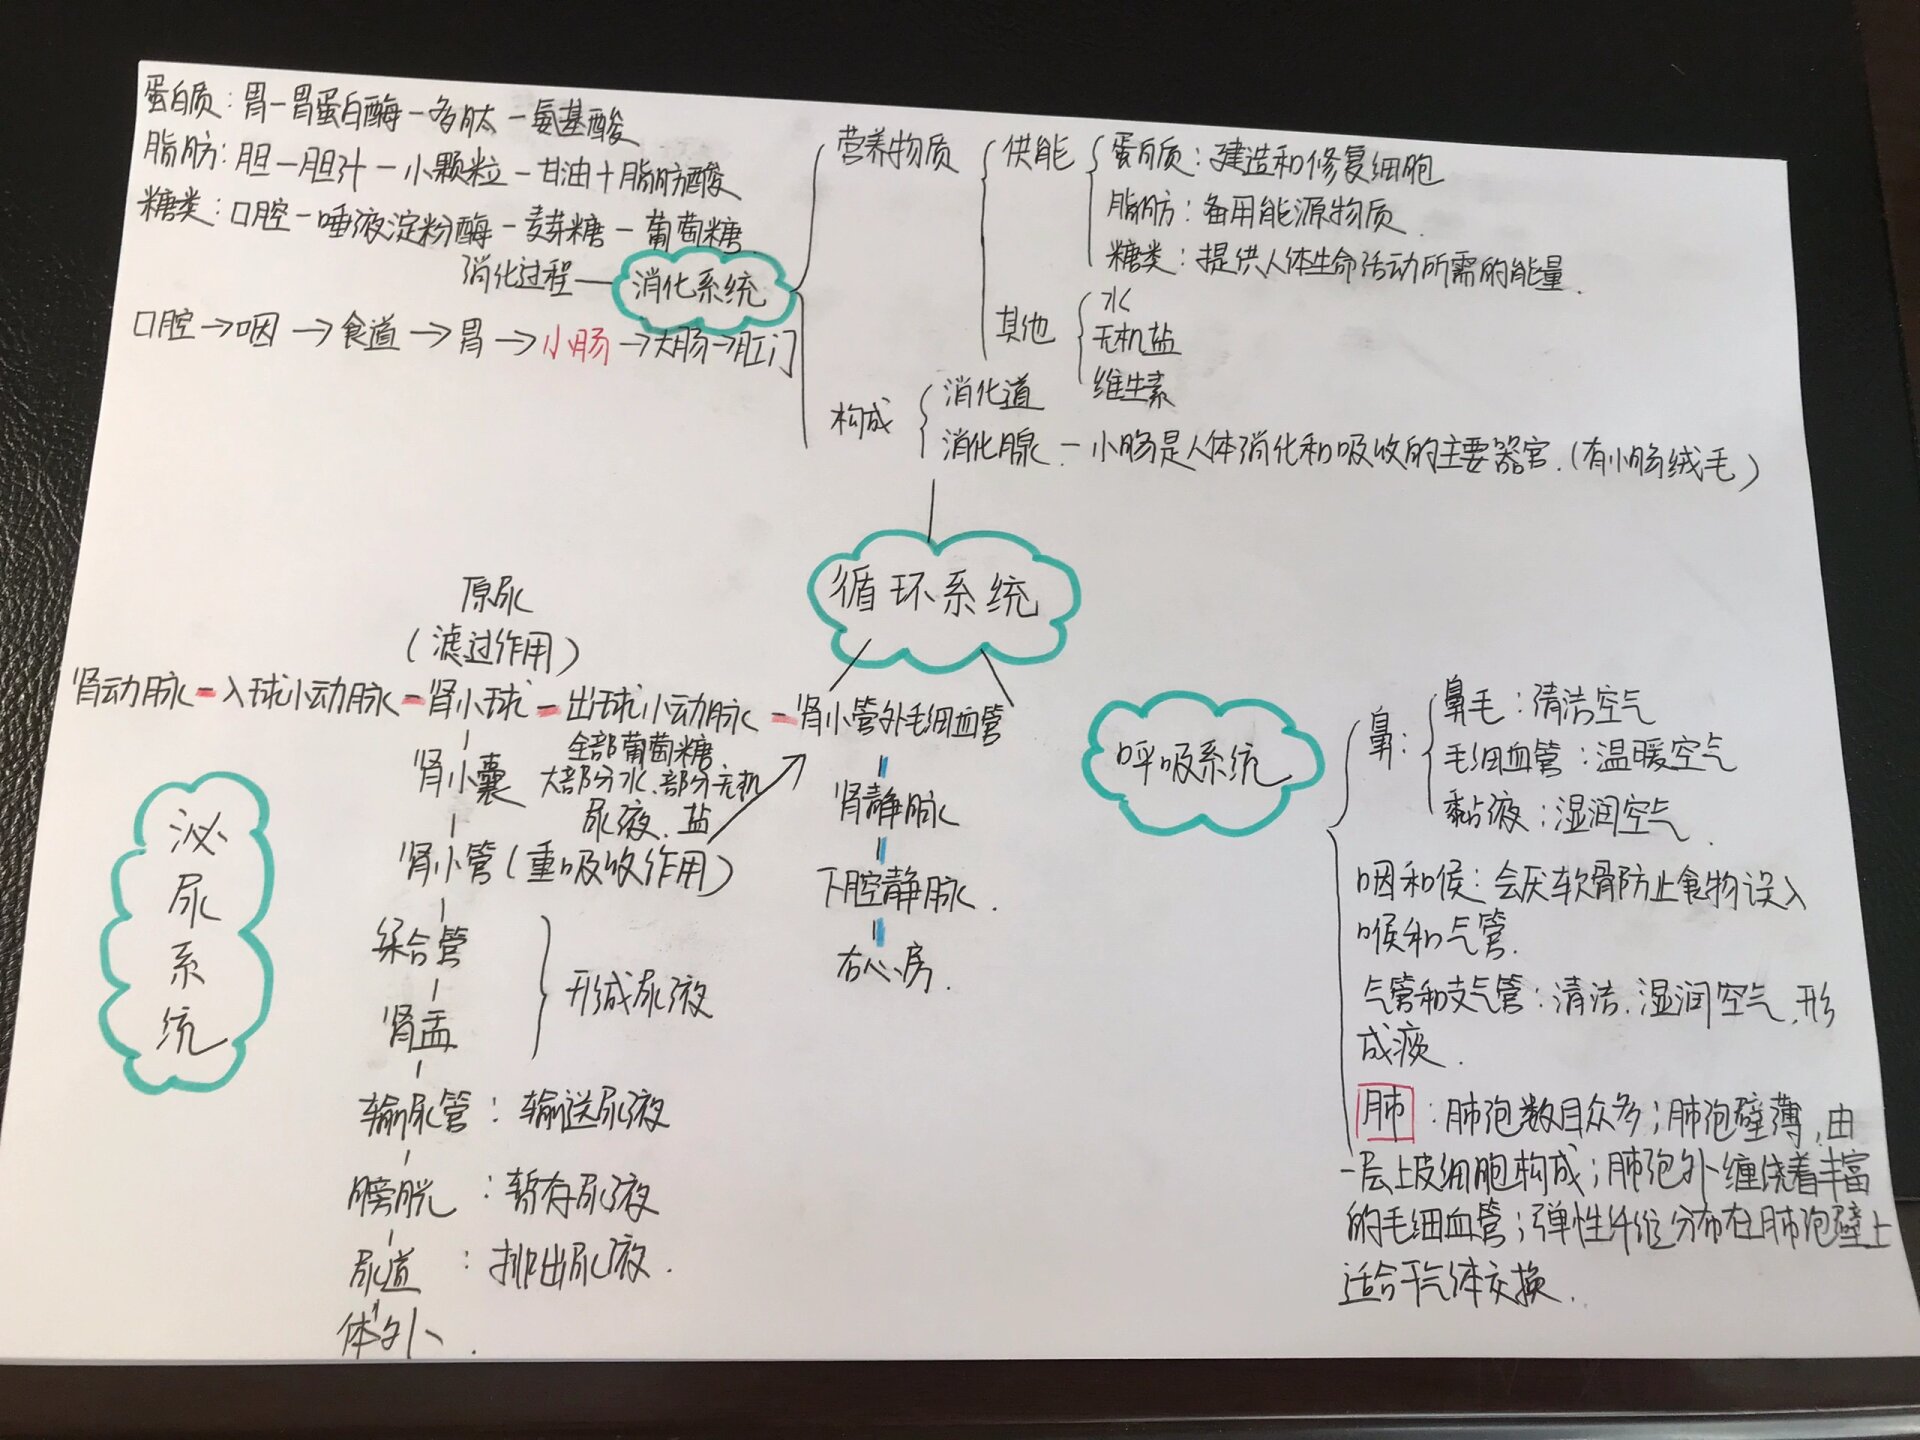 蛋白质：胃－胃蛋白酶－多肽－氨基酸
脂肪：胆－胆汁－小颗粒－甘油＋脂肪酸
糖类：口腔－唾液淀粉酶－麦芽糖－葡萄糖
消化过程—消化系统
口腔→咽→食道→胃→小肠→大肠→肛门
营养物质
供能
蛋白质：建造和修复细胞
脂肪：备用能源物质.
糖类：提供人体生命活动所需的能量.
其他
水
无机盐
维生素
构成
消化道
消化腺－小肠是人体消化和吸收的主要器官.(有小肠绒毛)
循环系统
泌尿系统
原尿
(滤过作用)
肾动脉－入球小动脉－肾小球－出球小动脉－肾小管外毛细血管
肾小囊
全部葡萄糖
大部分水.部分无机
尿液.盐
肾小管(重吸收作用)
综合管
肾盂
形成尿液
输尿管：输送尿液
膀胱：暂存尿液
尿道：排出尿液.
体外
肾静脉
下腔静脉.
右心房.
呼吸系统
鼻：
鼻毛：清洁空气
毛细血管：温暖空气
黏液：湿润空气.
咽和侯：会厌软骨防止食物误入
喉和气管.
气管和支气管：清洁.湿润空气.形
成痰.
肺：肺泡数目众多；肺泡壁薄,由
一层上皮细胞构成；肺泡外缠绕着丰富
的毛细血管；弹性纤维分布在肺泡壁上
适合于气体交换.